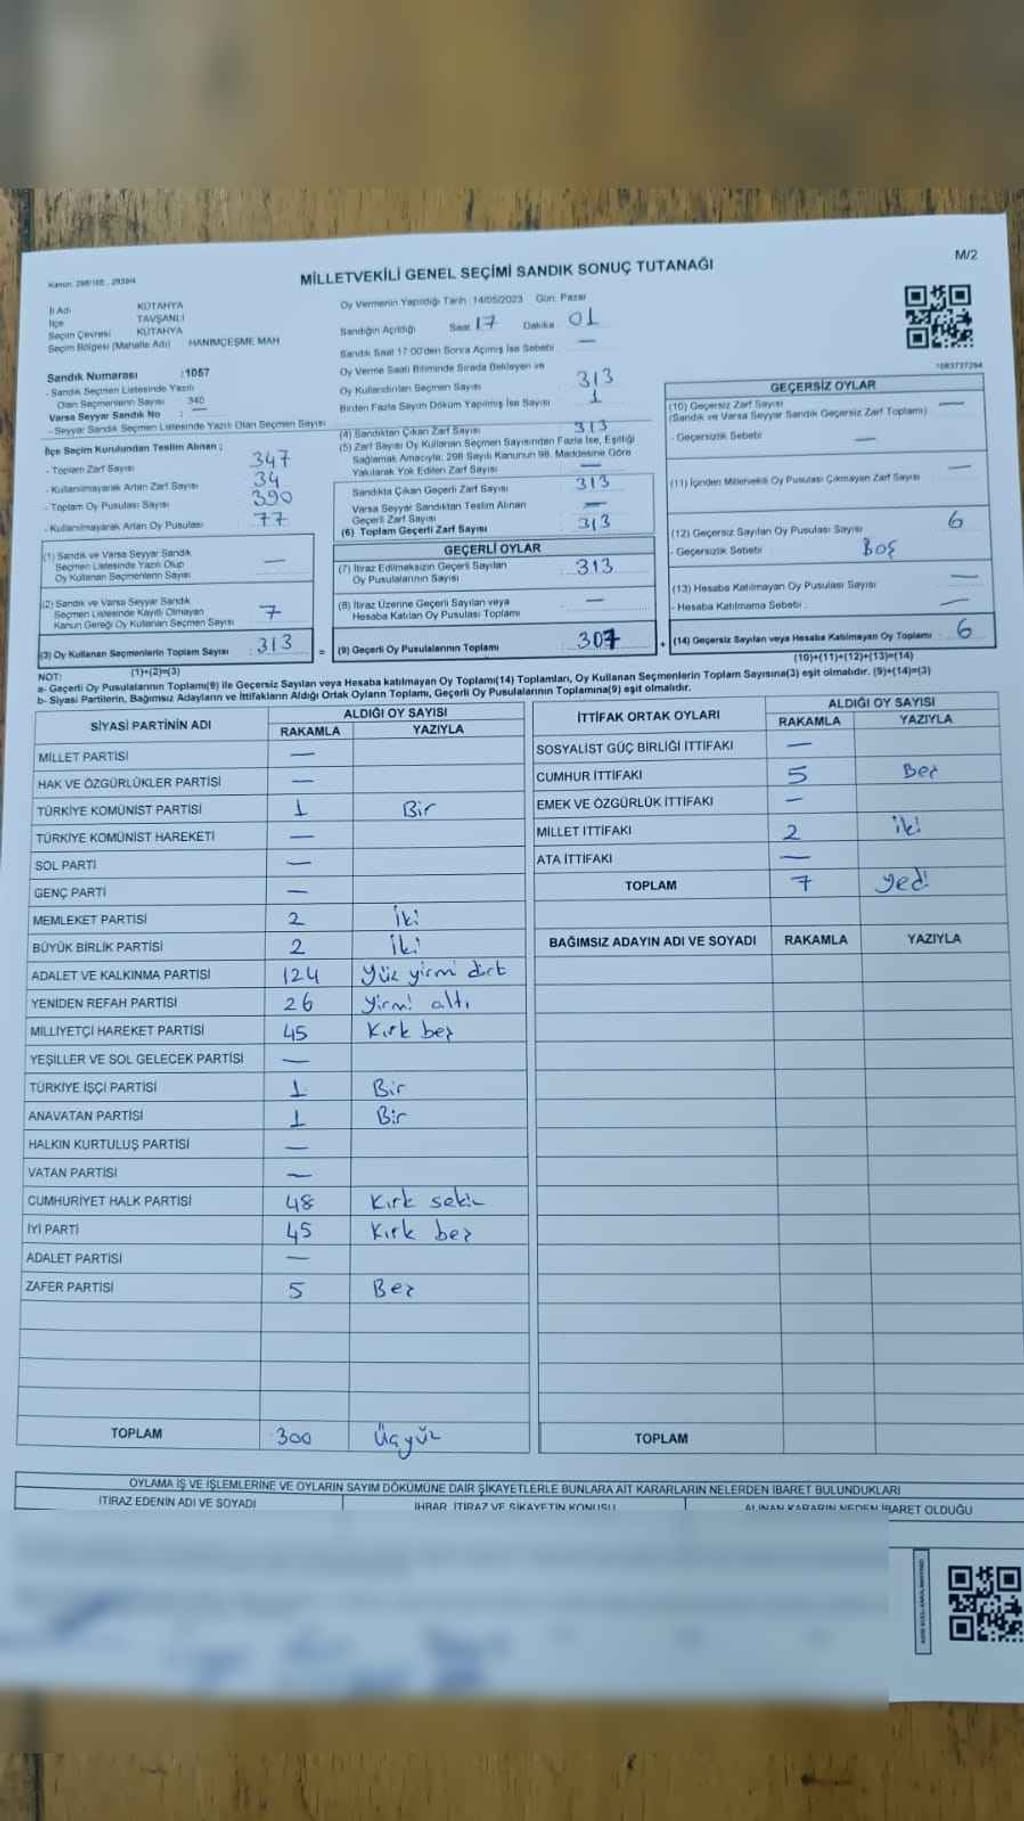 M/2
MİLLETVEKİLİ GENEL SEÇİMİ SANDIK SONUÇ TUTANAĞI
İl Adı KÜTAHYA
İlçe TAVŞANLI
Seçim Çevresi KÜTAHYA
Seçim Bölgesi (Mahalle Adı) HANIMÇEŞME MAH
Sandık Numarası :1057
- Sandık Seçmen Listesinde Yazılı
Olan Seçmenlerin Sayısı 340
Varsa Seyyar Sandık No : —
- Seyyar Sandık Seçmen Listesinde Yazılı Olan Seçmen Sayısı
İlçe Seçim Kurulundan Teslim Alınan :
- Toplam Zarf Sayısı 347
- Kullanılmayarak Artan Zarf Sayısı 34
- Toplam Oy Pusulası Sayısı 390
- Kullanılmayarak Artan Oy Pusulası 77
(1) Sandık ve Varsa Seyyar Sandık
Seçmen Listesinde Yazılı Olup
Oy Kullanan Seçmenlerin Sayısı —
(2) Sandık ve Varsa Seyyar Sandık
Seçmen Listesinde Kayıtlı Olmayan
Kanun Gereği Oy Kullanan Seçmen Sayısı 7
(3) Oy Kullanan Seçmenlerin Toplam Sayısı : 313 =
(1)+(2)=(3)
Oy Vermenin Yapıldığı Tarih : 14/05/2023 Gün: Pazar
Sandığın Açıldığı Saat 17 Dakika 01
Sandık Saat 17:00'den Sonra Açılmış İse Sebebi —
Oy Verme Saati Bitiminde Sırada Bekleyen ve
Oy Kullandırılan Seçmen Sayısı 313
Birden Fazla Sayım Döküm Yapılmış İse Sayısı 1
(4) Sandıktan Çıkan Zarf Sayısı 313
(5) Zarf Sayısı Oy Kullanan Seçmen Sayısından Fazla İse, Eşitliği
Sağlamak Amacıyla, 298 Sayılı Kanunun 98. Maddesine Göre
Yakılarak Yok Edilen Zarf Sayısı —
Sandıkta Çıkan Geçerli Zarf Sayısı 313
Varsa Seyyar Sandıktan Teslim Alınan
Geçerli Zarf Sayısı —
(6) Toplam Geçerli Zarf Sayısı 313
GEÇERLİ OYLAR
(7) İtiraz Edilmeksizin Geçerli Sayılan
Oy Pusulalarının Sayısı 313
(8) İtiraz Üzerine Geçerli Sayılan veya
Hesaba Katılan Oy Pusulası Toplamı —
(9) Geçerli Oy Pusulalarının Toplamı 307 +
GEÇERSİZ OYLAR
(10) Geçersiz Zarf Sayısı
(Sandık ve Varsa Seyyar Sandık Geçersiz Zarf Toplamı) —
- Geçersizlik Sebebi —
(11) İçinden Milletvekili Oy Pusulası Çıkmayan Zarf Sayısı —
(12) Geçersiz Sayılan Oy Pusulası Sayısı 6
- Geçersizlik Sebebi Boş
(13) Hesaba Katılmayan Oy Pusulası Sayısı —
- Hesaba Katılmama Sebebi —
(14) Geçersiz Sayılan veya Hesaba Katılmayan Oy Toplamı 6
(10)+(11)+(12)+(13)=(14)
NOT:
a- Geçerli Oy Pusulalarının Toplamı(9) ile Geçersiz Sayılan veya Hesaba katılmayan Oy Toplamı(14) Toplamları, Oy Kullanan Seçmenlerin Toplam Sayısına(3) eşit olmalıdır. (9)+(14)=(3)
b- Siyasi Partilerin, Bağımsız Adayların ve İttifakların Aldığı Ortak Oyların Toplamı, Geçerli Oy Pusulalarının Toplamına(9) eşit olmalıdır.
SİYASİ PARTİNİN ADI ALDIĞI OY SAYISI
RAKAMLA YAZIYLA
MİLLET PARTİSİ —
HAK VE ÖZGÜRLÜKLER PARTİSİ —
TÜRKİYE KOMÜNİST PARTİSİ 1 Bir
TÜRKİYE KOMÜNİST HAREKETİ —
SOL PARTİ —
GENÇ PARTİ —
MEMLEKET PARTİSİ 2 İki
BÜYÜK BİRLİK PARTİSİ 2 İki
ADALET VE KALKINMA PARTİSİ 124 Yüz yirmi dört
YENİDEN REFAH PARTİSİ 26 Yirmi altı
MİLLİYETÇİ HAREKET PARTİSİ 45 Kırk beş
YEŞİLLER VE SOL GELECEK PARTİSİ —
TÜRKİYE İŞÇİ PARTİSİ 1 Bir
ANAVATAN PARTİSİ 1 Bir
HALKIN KURTULUŞ PARTİSİ —
VATAN PARTİSİ —
CUMHURİYET HALK PARTİSİ 48 Kırk sekiz
İYİ PARTİ 45 Kırk beş
ADALET PARTİSİ —
ZAFER PARTİSİ 5 Beş
TOPLAM 300 Üçyüz
İTTİFAK ORTAK OYLARI ALDIĞI OY SAYISI
RAKAMLA YAZIYLA
SOSYALİST GÜÇ BİRLİĞİ İTTİFAKI —
CUMHUR İTTİFAKI 5 Beş
EMEK VE ÖZGÜRLÜK İTTİFAKI —
MİLLET İTTİFAKI 2 iki
ATA İTTİFAKI —
TOPLAM 7 yedi
BAĞIMSIZ ADAYIN ADI VE SOYADI RAKAMLA YAZIYLA
TOPLAM
OYLAMA İŞ VE İŞLEMLERİNE VE OYLARIN SAYIM DÖKÜMÜNE DAİR ŞİKAYETLERLE BUNLARA AİT KARARLARIN NELERDEN İBARET BULUNDUKLARI
İTİRAZ EDENİN ADI VE SOYADI İHBAR, İTİRAZ VE ŞİKAYETİN KONUSU ALINAN KARARIN NEDEN İBARET OLDUĞU